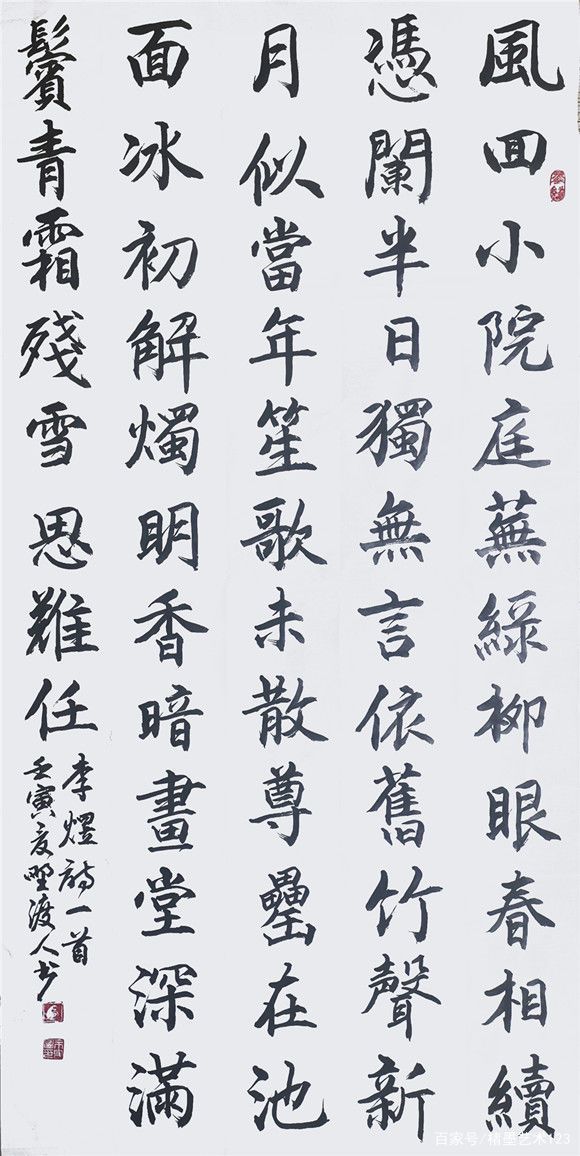 風回小院庭蕪綠柳眼春相續
憑闌半日獨無言依舊竹聲新
月似當年笙歌未散尊罍在池
面冰初解燭明香暗畫堂深滿
鬢青霜殘雪思難任
李煜詩一首
壬寅夏野渡人書
百家号/楮墨艺术123